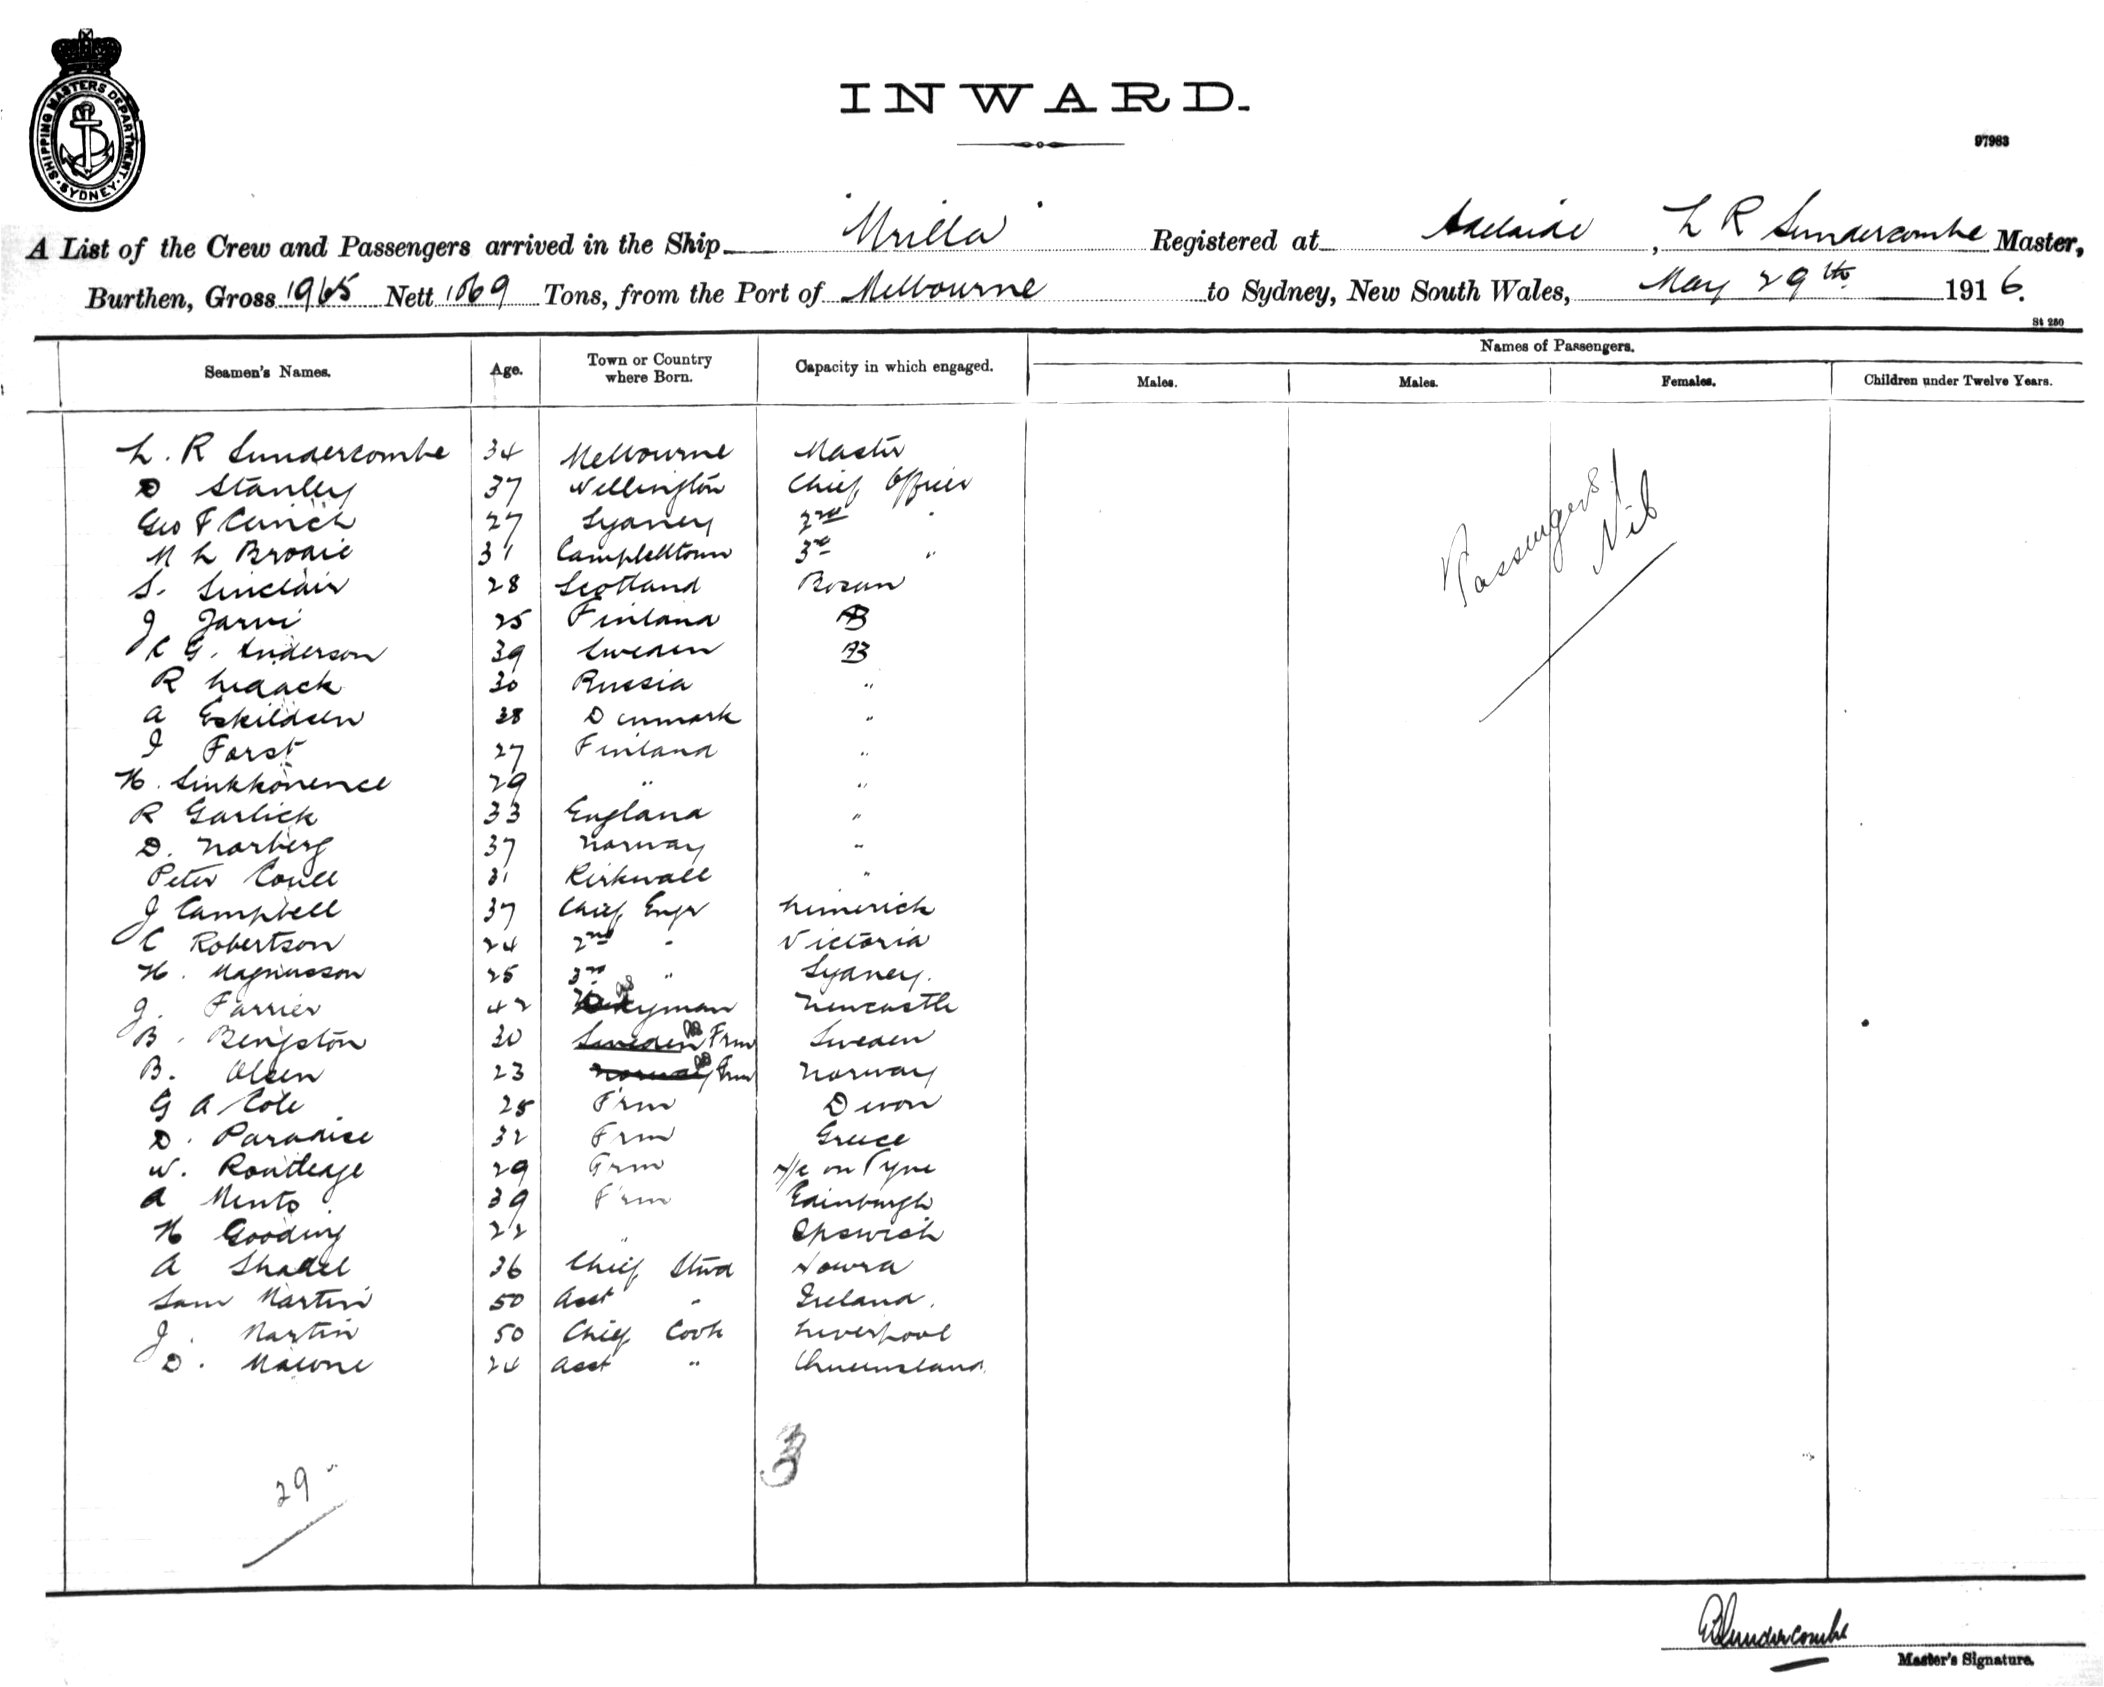 SHIPPING MASTERS DEPARTMENT. SYDNEY.
INWARD.
97983
A List of the Crew and Passengers arrived in the Ship "Urilla" Registered at Adelaide, L R Sundercombe Master,
Burthen, Gross 1965 Nett 1069 Tons, from the Port of Melbourne to Sydney, New South Wales, May 29th 1916.
St 250
Seamen's Names. Age. Town or Country where Born. Capacity in which engaged. Names of Passengers.
Males. Males. Females. Children under Twelve Years.
L. R Sundercombe 34 Melbourne Master
D Stanley 37 Wellington Chief Officer
Geo F Clinch 27 Sydney 2nd "
M L Brodie 31 Campbelltown 3rd "
S. Sinclair 28 Scotland Bosun
J Jarvi 25 Finland AB
C G. Anderson 39 Sweden AB
R 30 Russia "
A Eskildsen 38 Denmark "
Forst 27 Finland "
H. Sinkkonence 29 " "
R Garlick 33 England "
D. Norberg 37 Norway "
Peter Coull 31 Kirkwall "
J Campbell 37 Chief Engr Limerick
C Robertson 24 2nd " Victoria
H. Magnusson 25 3rd " Sydney.
J. Farrier 42 Newcastle
B. Bengston 30 Sweden Frm Sweden
B. Olsen 23 Norway Frm Norway
G A Cole 25 Frm Devon
D. Paradise 32 Frm Greece
W. Routledge 29 Frm N/c on Tyne
A Mento 39 Frm Edinburgh
H Gooding 22 " Ipswich
A Shadel 36 Chief Stwd Nowra
Sam Martin 50 Asst " Ireland.
J. Martin 50 Chief Cook Liverpool
D. Malone 24 Asst " Queensland.
Passengers Nil
29
3
Sundercombe
Master's Signature.